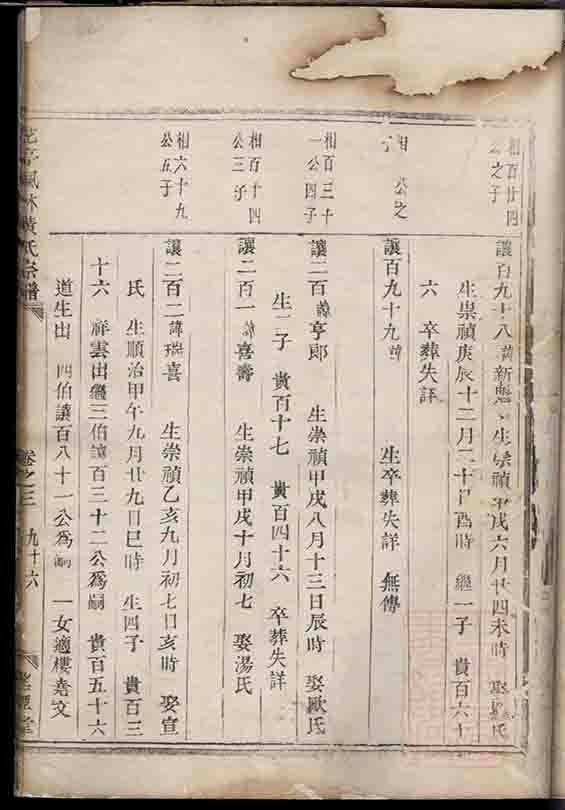 相百廿四
公之子
讓百九十八 諱新魁 生崇禎甲戌六月廿四未時 娶 氏
生崇禎庚辰十二月二十日酉時 繼一子 貴百六十
六 卒葬失詳
相 公之
子
讓百九十九 諱 生卒葬失詳 無傳
相百三十
一公四子
讓二百 諱亨郎 生崇禎甲戌八月十三日辰時 娶歐氏
生二子 貴百十七 貴百四十六 卒葬失詳
相百廿四
公三子
讓二百一 諱喜壽 生崇禎甲戌十月初七 娶湯氏
相六十九
公五子
讓二百二 諱瑞喜 生崇禎乙亥九月初七日亥時 娶宣
氏 生順治甲午九月廿九日巳時 生四子 貴百三
十六 祥雲出繼三伯讓百三十二公爲嗣 貴百五十六
道生出 四伯讓百八十一公爲嗣 一女適樓嘉文
亭楓林黄氏宗譜
卷之三 九十六
堂